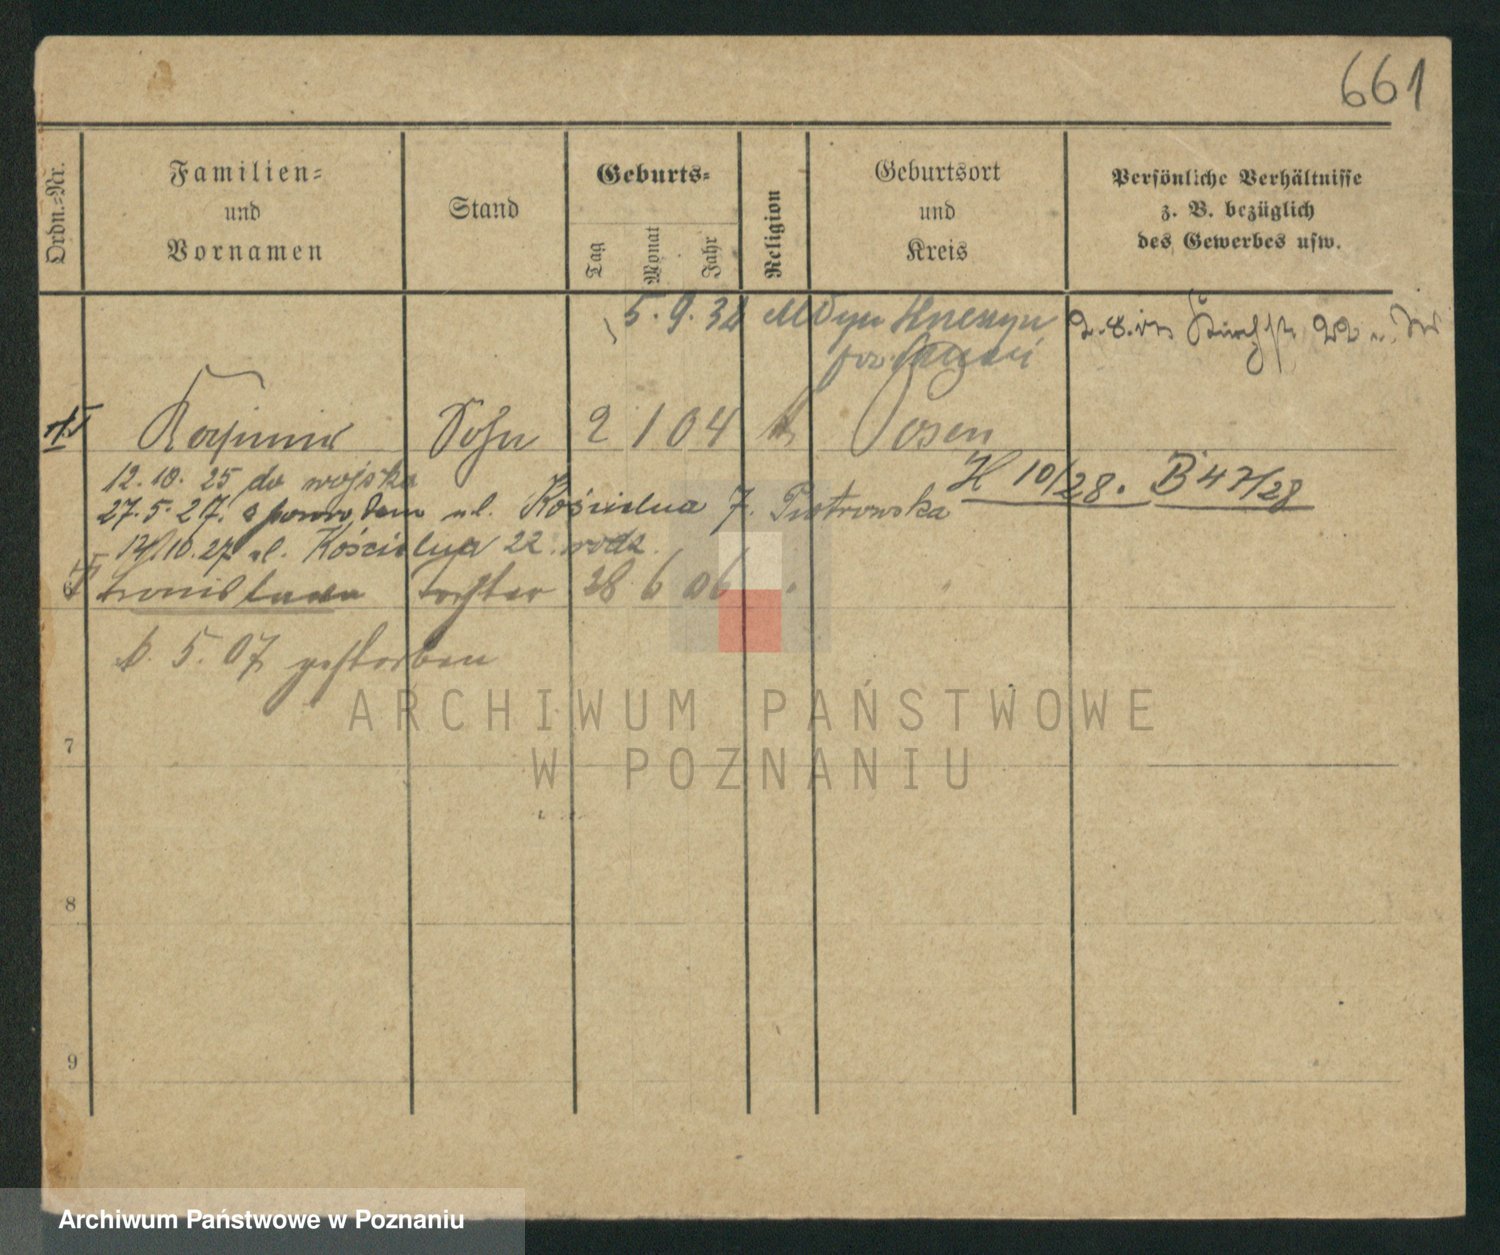 661
Ordn.-Nr.
Familien-
und
Vornamen
Stand
Geburts-
Tag
Monat
Jahr
Religion
Geburtsort
und
Kreis
Persönliche Verhältnisse
z. B. bezüglich
des Gewerbes usw.
5. 9. 32
pow.
22
Kasimir Sohn 2 1 04 k Posen
12. 10. 25 do wojska
H 10/28. B 47/28
27. 5. 27. z powrotem ul. Kościelna 7. Piotrowska
12/10. 27 ul. Kościelna 22 rodz.
6 Stanislawa Tochter 28 6 06 "
6. 5. 07 gestorben
7
8
9
ARCHIWUM PAŃSTWOWE
W POZNANIU
Archiwum Państwowe w Poznaniu